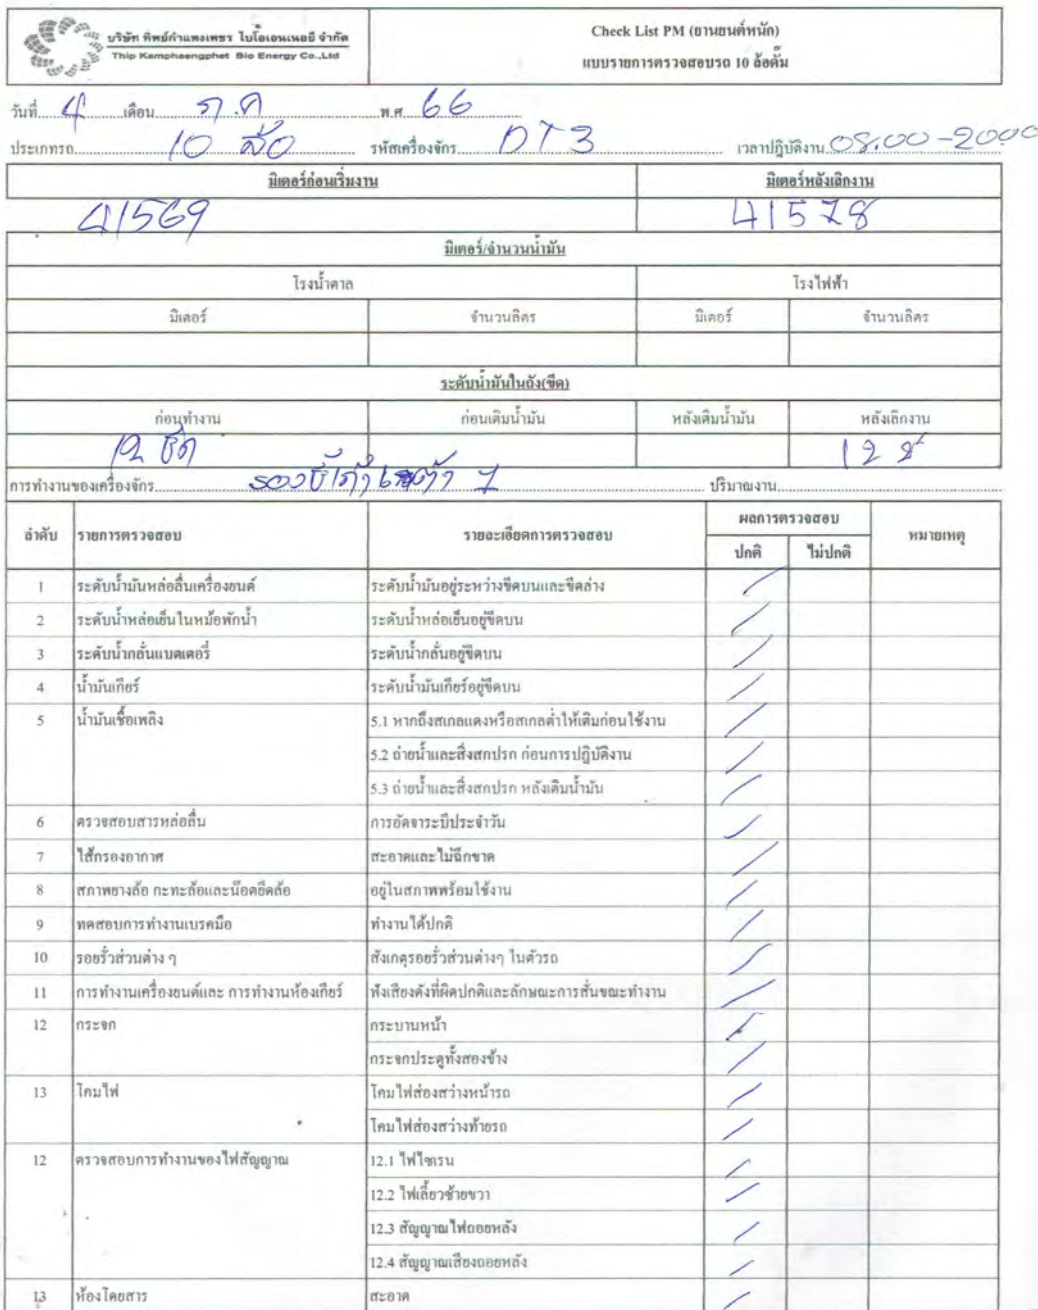 บริษัท ทิพย์กำแพงเพชร ไบโอเอนเนอยี จำกัด
Thip Kamphaengphet Bio Energy Co.,Ltd
Check List PM (ยานยนต์หนัก)
แบบรายการตรวจสอบรถ 10 ล้อดั๊ม
วันที่ 4 เดือน ก.ค พ.ศ. 66
ประเภทรถ 10 ล้อ รหัสเครื่องจักร DT3 เวลาปฏิบัติงาน 08.00-20.00
มิเตอร์ก่อนเริ่มงาน มิเตอร์หลังเลิกงาน
41569 41578
มิเตอร์/จำนวนน้ำมัน
โรงน้ำตาล โรงไฟฟ้า
มิเตอร์ จำนวนลิตร มิเตอร์ จำนวนลิตร
ระดับน้ำมันในถัง(ขีด)
ก่อนทำงาน ก่อนเติมน้ำมัน หลังเติมน้ำมัน หลังเลิกงาน
12 ขีด 12 ขี
การทำงานของเครื่องจักร รองขี้เถ้า 1 ปริมาณงาน
ลำดับ รายการตรวจสอบ รายละเอียดการตรวจสอบ ผลการตรวจสอบ หมายเหตุ
ปกติ ไม่ปกติ
1 ระดับน้ำมันหล่อลื่นเครื่องยนต์ ระดับน้ำมันอยู่ระหว่างขีดบนและขีดล่าง /
2 ระดับน้ำหล่อเย็นในหม้อพักน้ำ ระดับน้ำหล่อเย็นอยู่ขีดบน /
3 ระดับน้ำกลั่นแบตเตอรี่ ระดับน้ำกลั่นอยู่ขีดบน /
4 น้ำมันเกียร์ ระดับน้ำมันเกียร์อยู่ขีดบน /
5 น้ำมันเชื้อเพลิง 5.1 หากถึงสเกลแดงหรือสเกลต่ำให้เติมก่อนใช้งาน /
5.2 ถ่ายน้ำและสิ่งสกปรก ก่อนการปฏิบัติงาน /
5.3 ถ่ายน้ำและสิ่งสกปรก หลังเติมน้ำมัน /
6 ตรวจสอบสารหล่อลื่น การอัดจาระบีประจำวัน /
7 ไส้กรองอากาศ สะอาดและไม่ฉีกขาด /
8 สภาพยางล้อ กะทะล้อและน๊อตยึดล้อ อยู่ในสภาพพร้อมใช้งาน /
9 ทดสอบการทำงานเบรคมือ ทำงานได้ปกติ /
10 รอยรั่วส่วนต่าง ๆ สังเกตุรอยรั่วส่วนต่างๆ ในตัวรถ /
11 การทำงานเครื่องยนต์และ การทำงานห้องเกียร์ ฟังเสียงดังที่ผิดปกติและลักษณะการสั่นขณะทำงาน /
12 กระจก กระบานหน้า /
กระจกประตูทั้งสองข้าง /
13 โคมไฟ โคมไฟส่องสว่างหน้ารถ /
โคมไฟส่องสว่างท้ายรถ /
12 ตรวจสอบการทำงานของไฟสัญญาณ 12.1 ไฟไซเรน /
12.2 ไฟเลี้ยวซ้ายขวา /
12.3 สัญญาณไฟถอยหลัง /
12.4 สัญญาณเสียงถอยหลัง /
13 ห้องโดยสาร สะอาด /